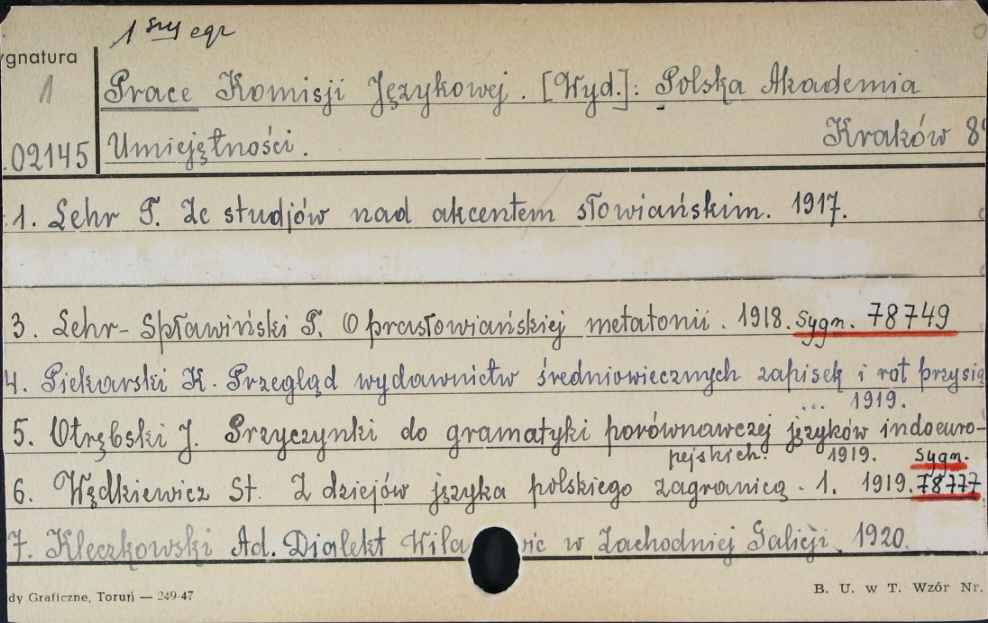 1 szy egz
ygnatura
1
Prace Komisji Językowej. [Wyd.]: Polska Akademia
.02145 Umiejętności. Kraków 8°
1. Lehr T. Ze studjów nad akcentem słowiańskim. 1917.
3. Lehr-Spławiński T. O prasłowiańskiej metatonii. 1918. Sygn. 78749
4. Piekarski K. Przegląd wydawnictw średniowiecznych zapisek i rot przysią
... 1919.
5. Otrębski J. Przyczynki do gramatyki porównawczej języków indoeuro-
pejskich. 1919. Sygn.
6. Wędkiewicz St. Z dziejów języka polskiego zagranicą. 1. 1919. 78777
7. Kleczkowski Ad. Dialekt Wila ic w Zachodniej Galicji. 1920.
dy Graficzne, Toruń — 249-47
B. U. w T. Wzór Nr.